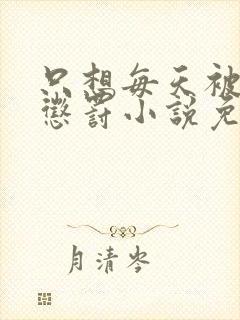 只想每天被
懲罰小說免
月清岑